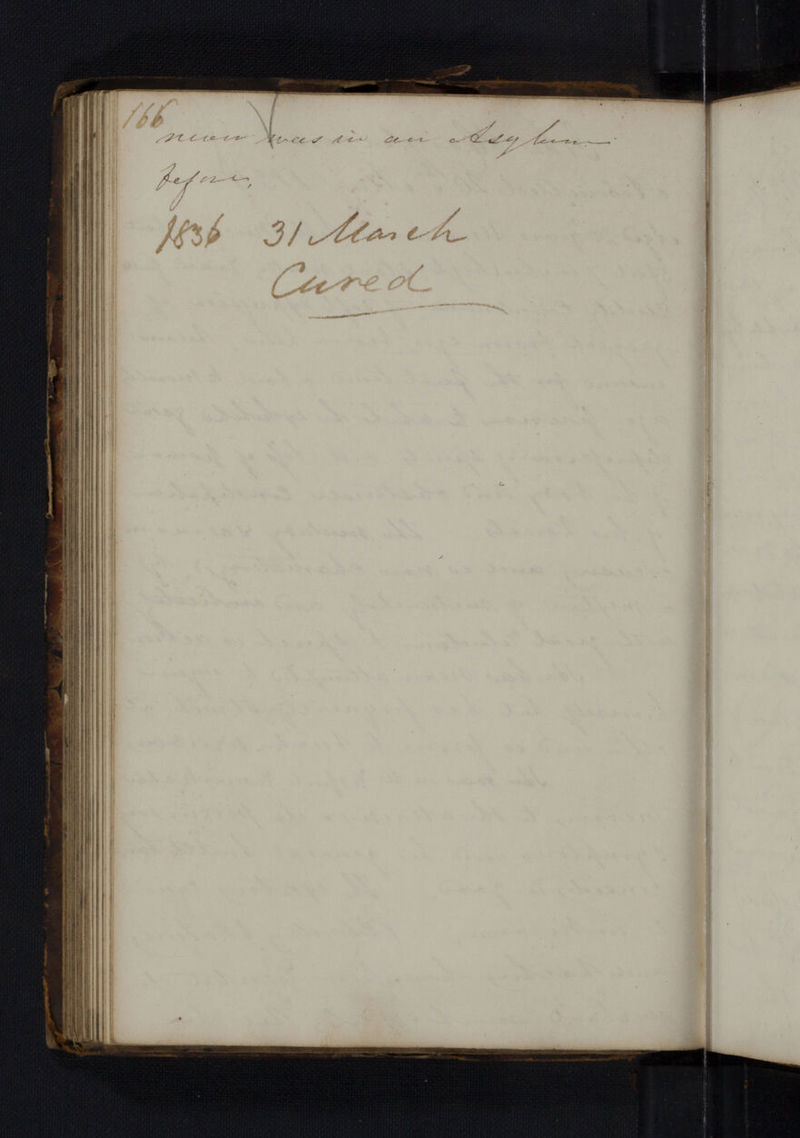 166
never was in an Asylum
before.
1836 31 March
Cured